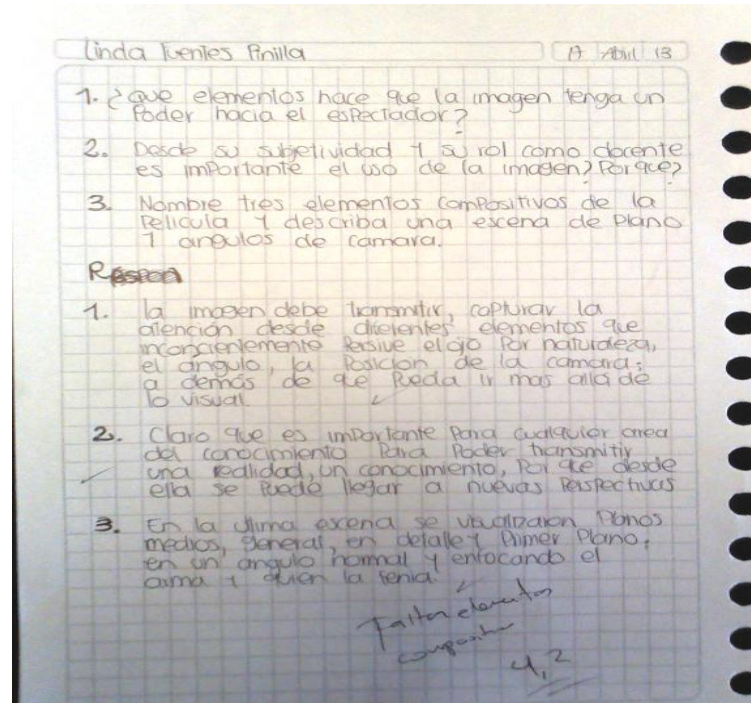 Linda Fuentes Pinilla 17 Abril 13
1. ¿Que elementos hace que la imagen tenga un
Poder hacia el espectador?
2. Desde su subjetividad y su rol como docente
es importante el uso de la imagen? Porque?
3. Nombre tres elementos compositivos de la
Pelicula y describa una escena de Plano
y angulos de camara.
1. la imagen debe transmitir, capturar la
atención desde diferentes elementos que
inconcientemente Persive el ojo Por naturaleza,
el angulo, la Posición de la camara;
a demás de que Pueda ir mas alla de
lo visual.
2. Claro que es importante Para cualquier area
del conocimiento Para Poder transmitir
una realidad, un conocimiento, Por que desde
ella se Puede llegar a nuevas Perspectivas
3. En la ultima escena se visualizaron Planos
medios, general, en detalle y Primer Plano;
en un angulo normal y enfocando el
arma y quien la tenia.
Faltan elementos
4,2